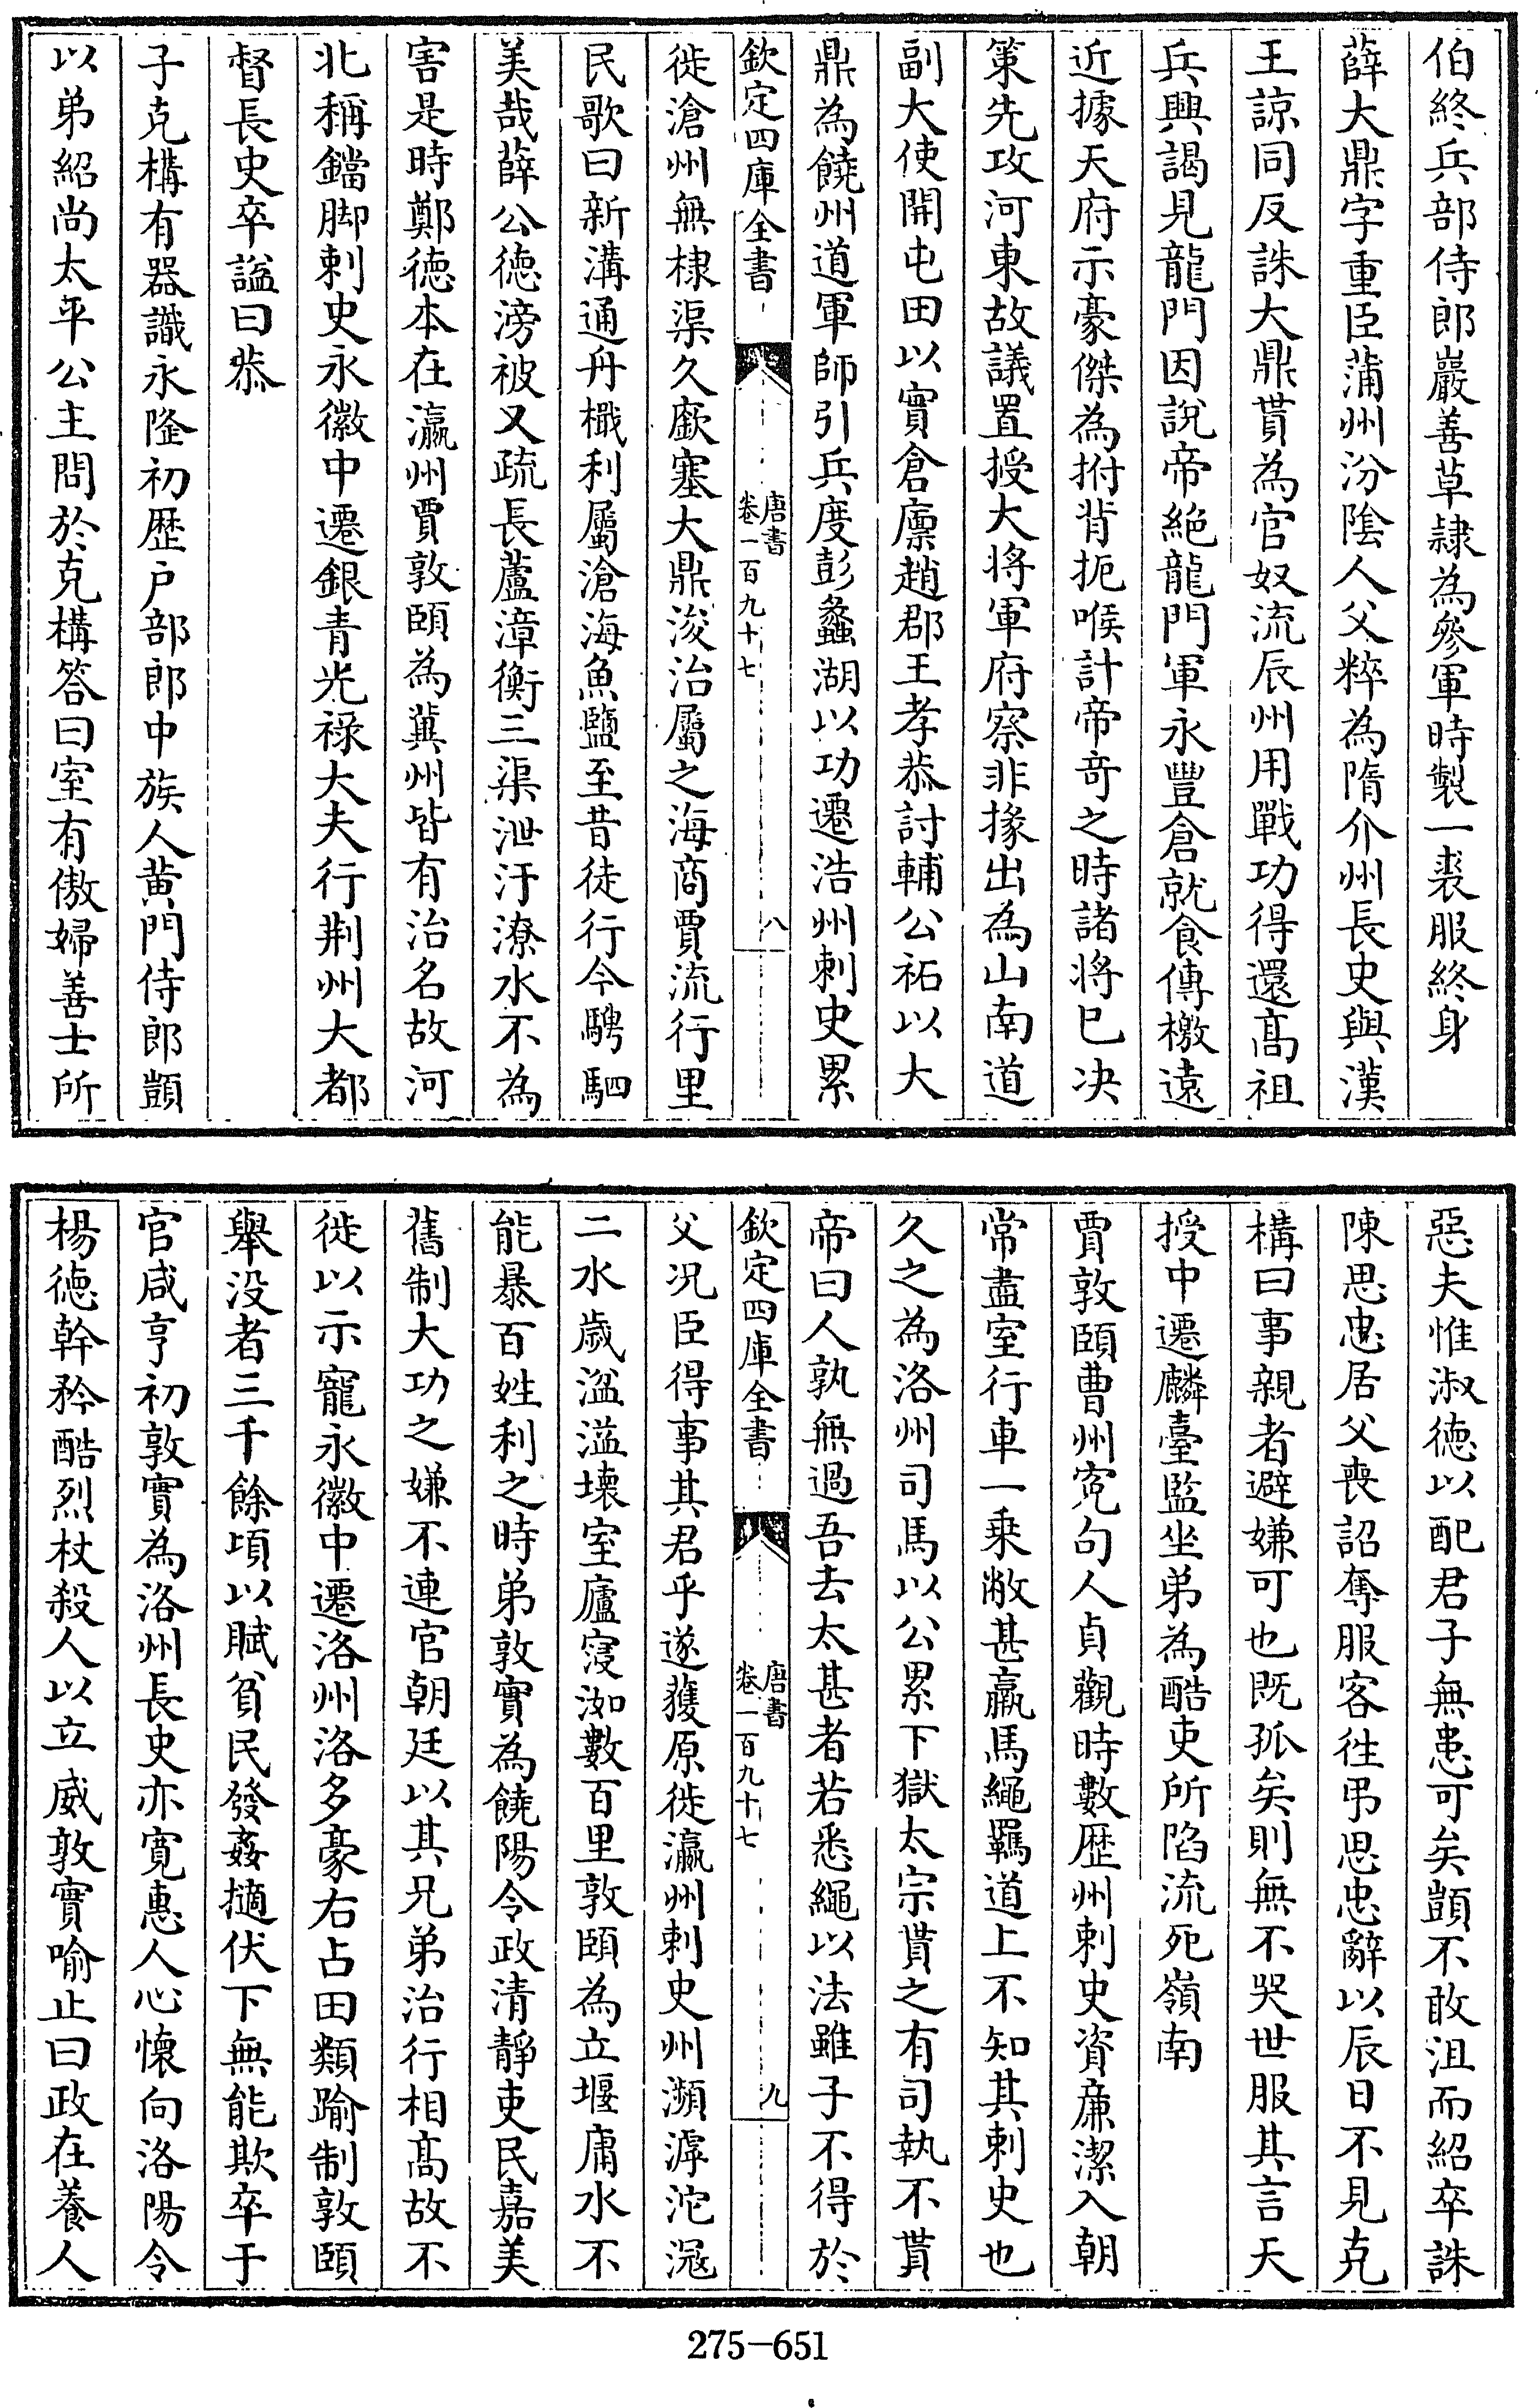 伯終兵部侍郎巖善草隸為參軍時製一裘服終身
薛大鼎字重臣蒲州汾陰人父粹為隋介州長史與漢
王諒同反誅大鼎貰為官奴流辰州用戰功得還髙祖
兵興謁見龍門因說帝絕龍門軍永豐倉就食傳檄遠
近據天府示豪傑為拊背扼喉計帝奇之時諸将已决
策先攻河東故議置授大将軍府察非掾出為山南道
副大使開屯田以實倉廪趙郡王孝恭討輔公祏以大
鼎為饒州道軍師引兵度彭蠡湖以功遷浩州刺史累
欽定四庫全書
唐書
卷一百九十七
八
徙滄州無棣渠久廞塞大鼎浚治屬之海商賈流行里
民歌曰新溝通舟檝利屬滄海魚鹽至昔徒行今騁駟
美哉薛公徳滂被又疏長蘆漳衡三渠泄汙潦水不為
害是時鄭徳本在瀛州賈敦頤為冀州皆有治名故河
北稱鐺脚刺史永徽中遷銀青光禄大夫行荆州大都
督長史卒諡曰恭
子克構有器識永隆初歴户部郎中族人黄門侍郎顗
以弟紹尚太平公主問於克構答曰室有傲婦善士所
惡夫惟淑徳以配君子無患可矣顗不敢沮而紹卒誅
陳思忠居父喪詔奪服客往弔思忠辭以辰日不見克
構曰事親者避嫌可也既孤矣則無不哭世服其言天
授中遷麟臺監坐弟為酷吏所陷流死嶺南
賈敦頤曹州寃句人貞觀時數歴州刺史資亷潔入朝
常盡室行車一乗敝甚羸馬繩羈道上不知其刺史也
久之為洛州司馬以公累下獄太宗貰之有司執不貰
帝曰人孰無過吾去太甚者若悉繩以法雖子不得於
欽定四庫全書
唐書
卷一百九十七
九
父况臣得事其君乎遂獲原徙瀛州刺史州瀕滹沱滱
二水歳湓溢壊室廬寖洳數百里敦頤為立堰庸水不
能暴百姓利之時弟敦實為饒陽令政清靜吏民嘉美
舊制大功之嫌不連官朝廷以其兄弟治行相髙故不
徙以示寵永徽中遷洛州洛多豪右占田類踰制敦頤
舉没者三千餘頃以賦貧民發姦擿伏下無能欺卒于
官咸亨初敦實為洛州長史亦寛惠人心懷向洛陽令
楊徳幹矜酷烈杖殺人以立威敦實喻止曰政在養人
275-651